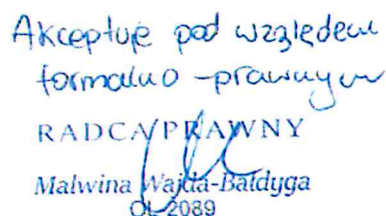 Akceptuję pod względem
formalno-prawnym
RADCA PRAWNY
Malwina Wajda-Bałdyga
OL-2089